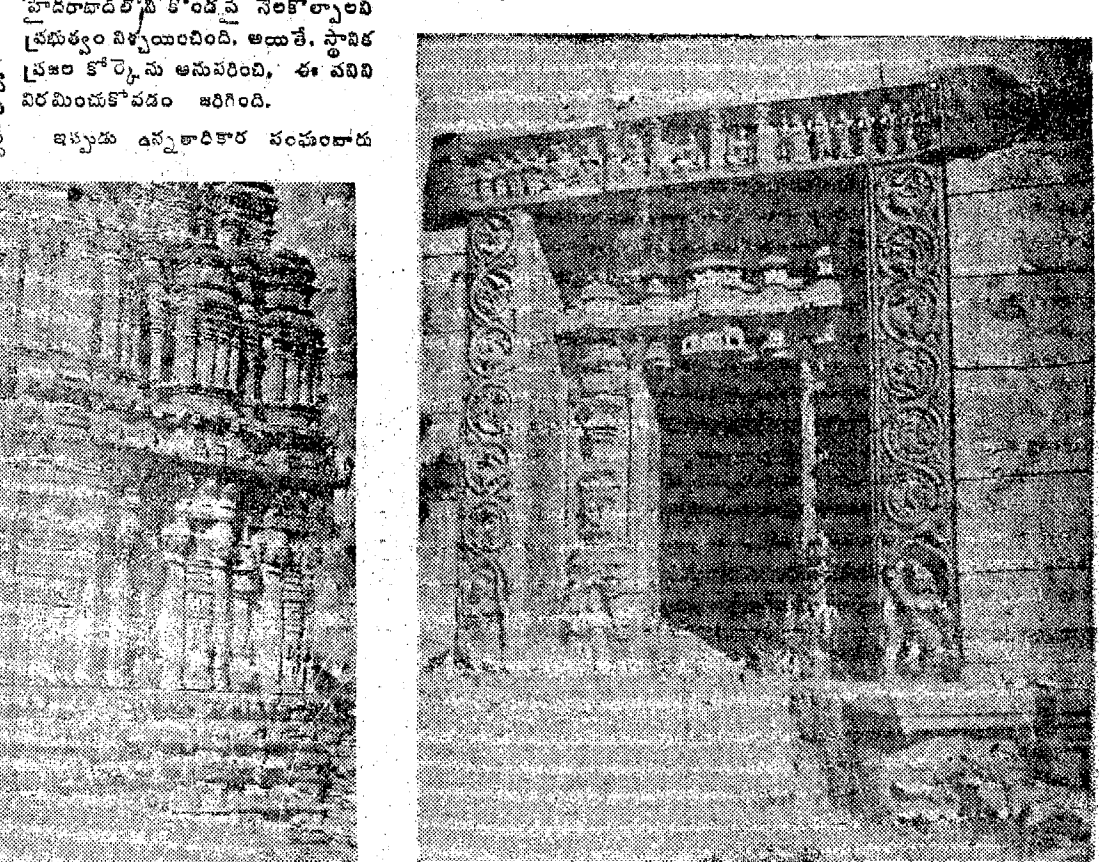 హైదరాబాద్‌లోని కొండపై నెలకొల్పాలని
ప్రభుత్వం నిశ్చయించింది. అయితే, స్థానిక
ప్రజల కోర్కెను అనుసరించి, ఈ పనిని
విరమించుకోవడం జరిగింది.
ఇప్పుడు ఉన్నతాధికార సంఘంవారు